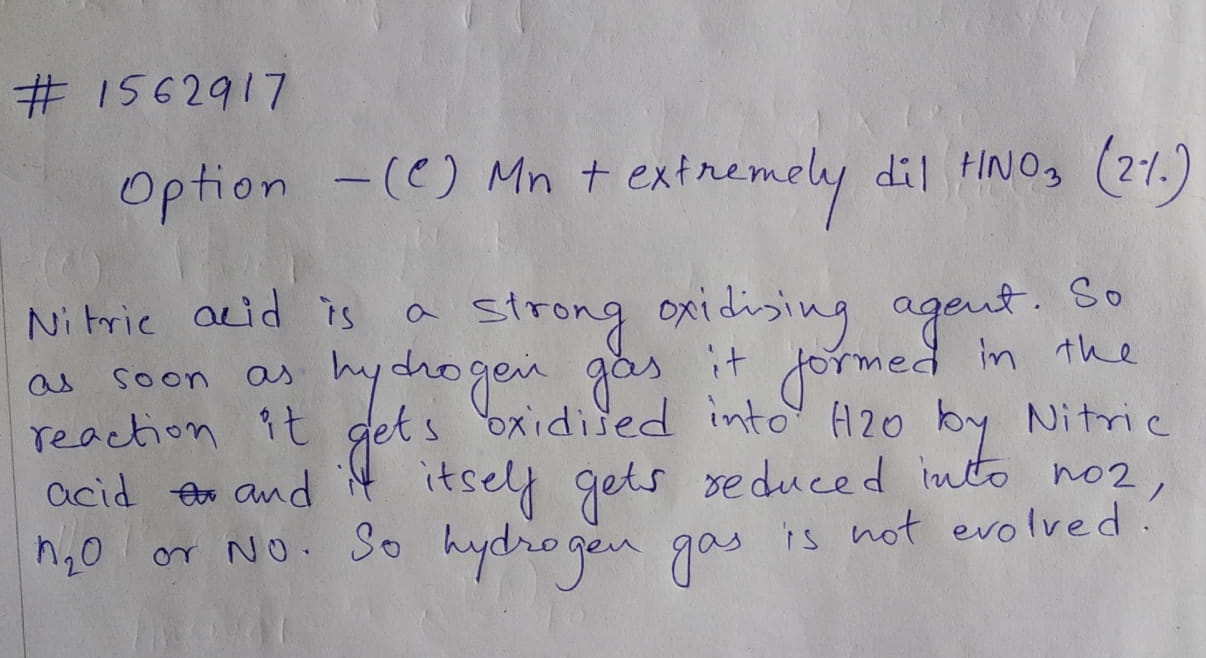 # 1562917
Option - (c) Mn + extremely dil HNO3 (2%)
Nitric acid is a strong oxidizing agent. So
as soon as hydrogen gas it formed in the
reaction it gets oxidised into H2O by Nitric
acid and it itself gets reduced into no2,
n2O or NO. So hydrogen gas is not evolved.